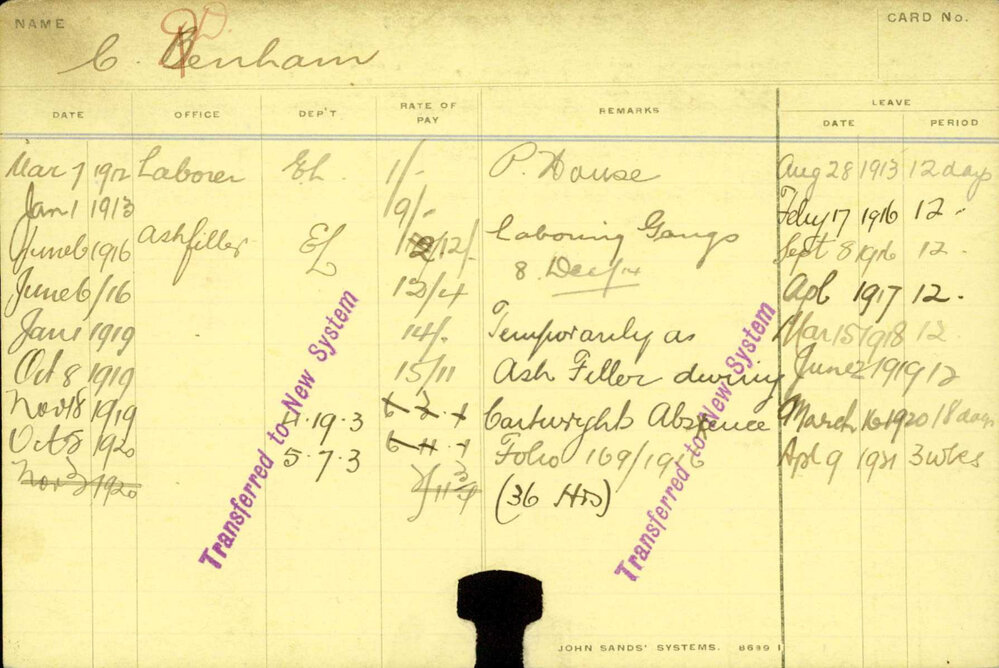 NAME
CARD No.
C. Benham
DATE OFFICE DEP'T RATE OF PAY REMARKS LEAVE
DATE PERIOD
Mar 7 1912 Laborer EL 1/- P. House Aug 28 1913 12 days
Jan 1 1913 9/- Feby 17 1916 12 "
June 6 1916 Ashfiller EL 12/- Laboring Gangs Sept 8 1916 12 "
8 Dec/14
June 6/16 12/4 Apl 1917 12 "
Jan 1 1919 14/- Temporarily as Mar 15 1918 12
Oct 8 1919 15/11 Ash Filler during June 2 1919 12
Nov 18 1919 4.19.3 Cartwright's Absence March 16 1920 18 days
Oct 8 1920 5.7.3 Folio 169/1916 Apl 9 1921 3 wks
Nov 3 1920 (36 Hrs)
Transferred to New System
Transferred to New System
JOHN SANDS' SYSTEMS. 8699